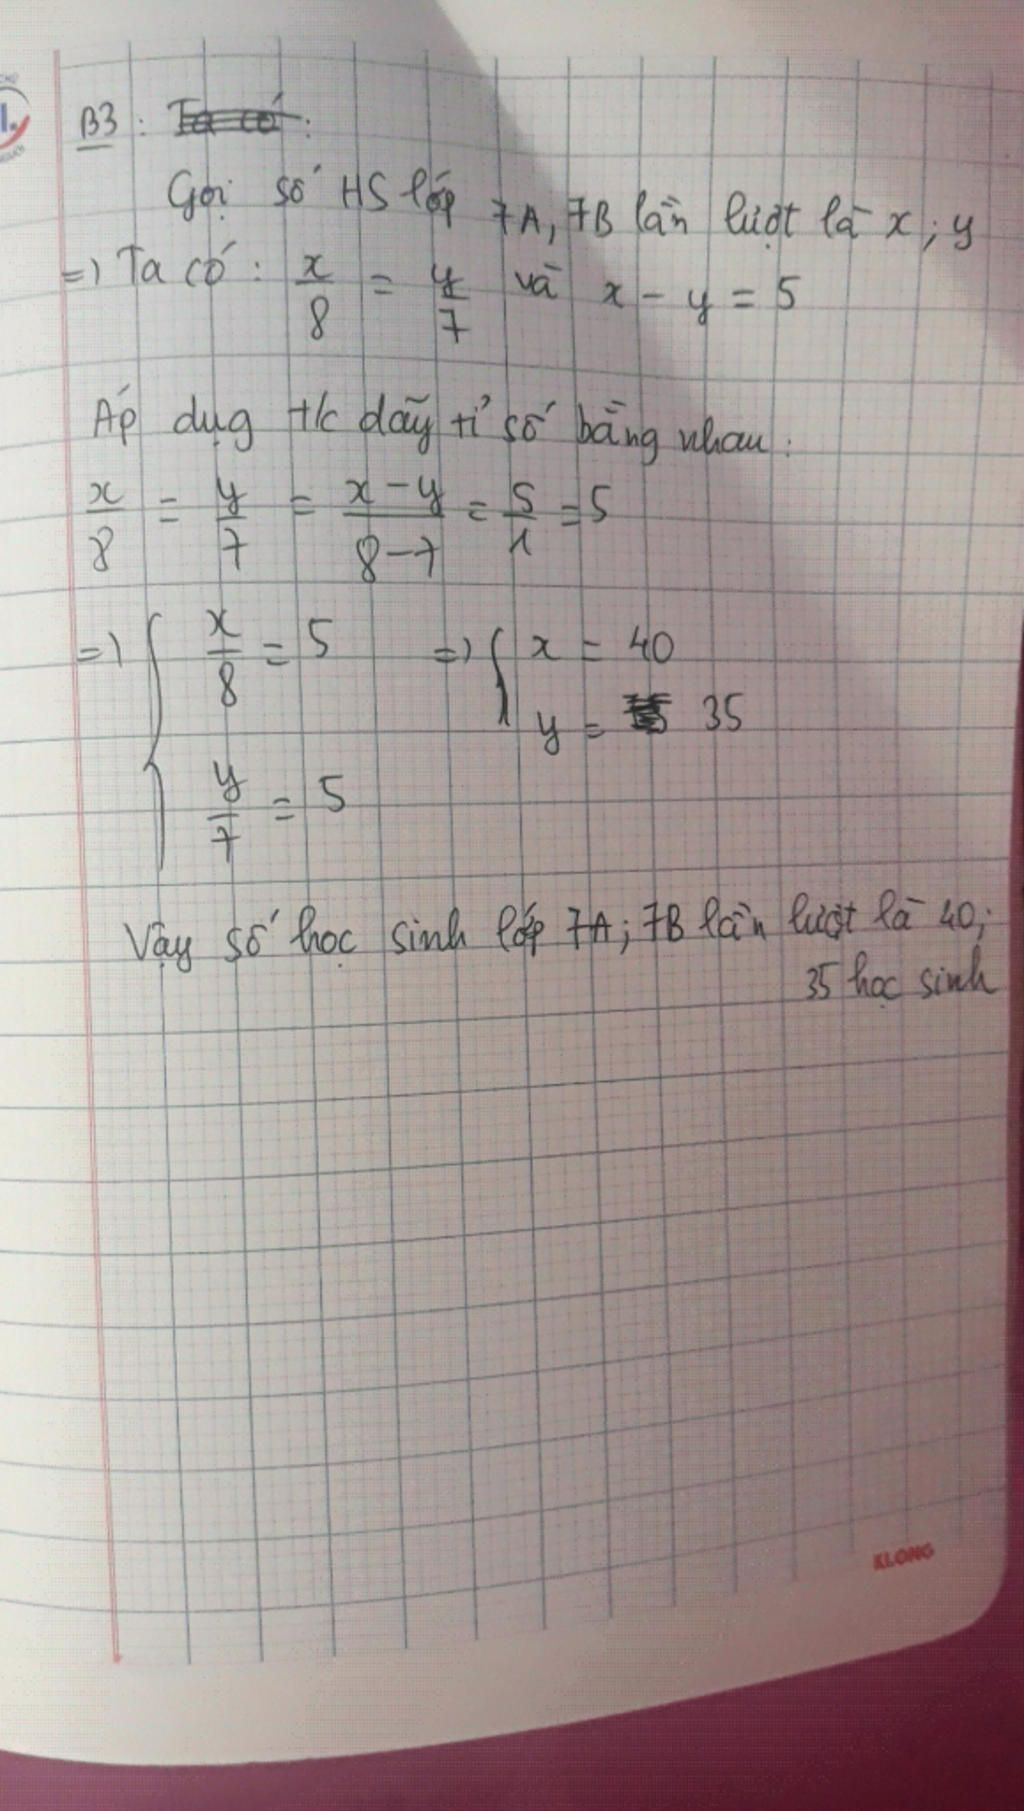 B3 : Ta có :
Gọi số HS lớp 7A, 7B lần lượt là x ; y
=) Ta có : x/8 = y/7 và x - y = 5
Áp dụg t/c dãy tỉ số bằng nhau :
x/8 = y/7 = x - y/8 - 7 = 5/1 = 5
=) { x/8 = 5 =) { x = 40
y = 35
y/7 = 5
Vậy số học sinh lớp 7A ; 7B lần lượt là 40 ;
35 học sinh
KLONG